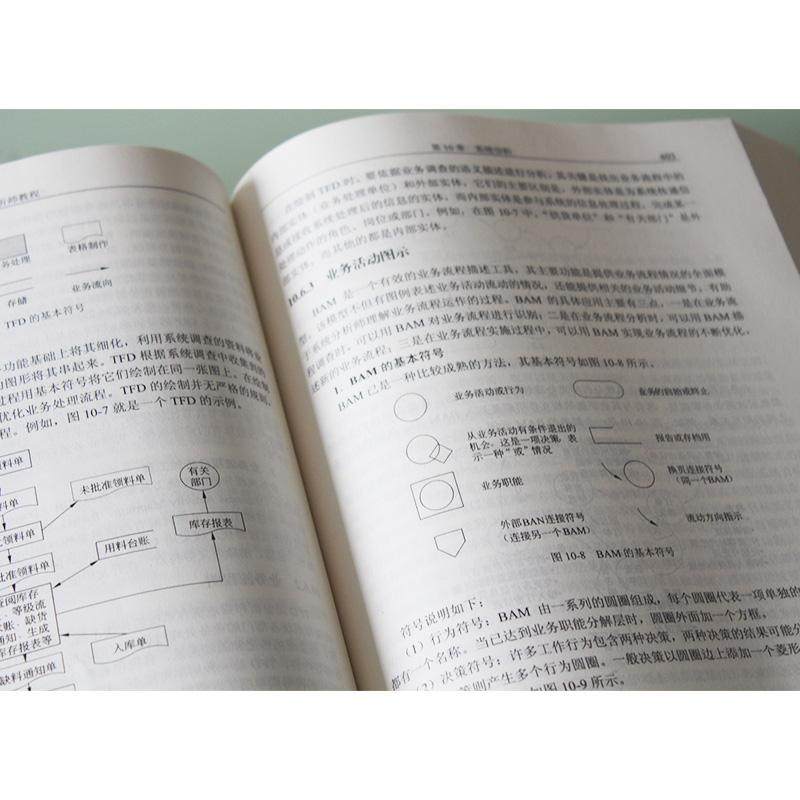 析师教程
务处理
表格制作
存储
业务流向
TFD 的基本符号
功能基础上将其细化，利用系统调查的资料将业
图形将其串起来。TFD 根据系统调查中收集到的
过程用基本符号将它们绘制在同一张图上。在绘制
优化业务处理流程。TFD 的绘制并无严格的规则，
程。例如，图 10-7 就是一个 TFD 的示例。
料单
料单
领料单
批准领料单
查阅库存
、等级流
账、缺货
通知、生成
库存报表等
缺料通知单
未批准领料单
用料台账
入库单
有关
部门
库存报表
第 10 章 系统分析
403
在绘制 TFD 时，要依据业务调查的语义描述进行分析，其关键是找出业务流程中的
内部实体（业务处理单位）和外部实体。它们的主要区别是，外部实体是为系统传递信
息或接收系统处理后的信息的实体，而内部实体是参与系统的信息处理过程，完成某一
处理动作的角色、岗位或部门。例如，在图 10-7 中，“供货单位”和“有关部门”是外
部实体，而其他的都是内部实体。
10.6.3 业务活动图示
BAM 是一个有效的业务流程描述工具，其主要功能是提供业务流程情况的全面模
型，该模型不但有图例表述业务活动流动的情况，还能提供相关的业务活动细节，有助
于系统分析师理解业务流程运作的过程。BAM 的具体应用主要有三点，一是在业务流
程调查时，可以用 BAM 对业务流程进行识别；二是在业务流程分析时，可以用 BAM 描
述新的业务流程；三是在业务流程实施过程中，可以用 BAM 实现业务流程的不断优化。
1. BAM 的基本符号
BAM 已是一种比较成熟的方法，其基本符号如图 10-8 所示。
业务活动或行为
业务的初始或终止
从业务活动有条件退出的
机会。这是一项决策，表
示一种“或”情况
报告或存档用
业务职能
换页连接符号
（同一个BAM）
外部BAN连接符号
（连接另一个BAM）
流动方向指示
图 10-8 BAM 的基本符号
符号说明如下：
（1）行为符号：BAM 由一系列的圆圈组成，每个圆圈代表一项单独的
都有一个名称。当已达到业务职能分解层时，圆圈外面加一个方框。
（2）决策符号：许多工作行为包含两种决策，两种决策的结果可能分
策则产生多个行为圆圈。一般决策以圆圈边上添加一个菱形
如图 10-9 所示。